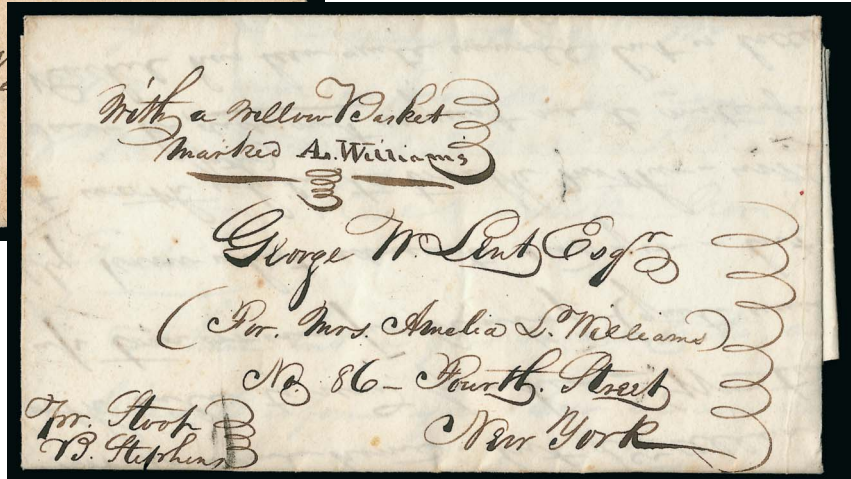 With a willow Basket
marked A.L. Williams
George W. Lent Esqr
(For. Mrs. Amelia L. Williams)
No. 86 – Fourth. Street
New York
Pr. Sloop
B. Stephens